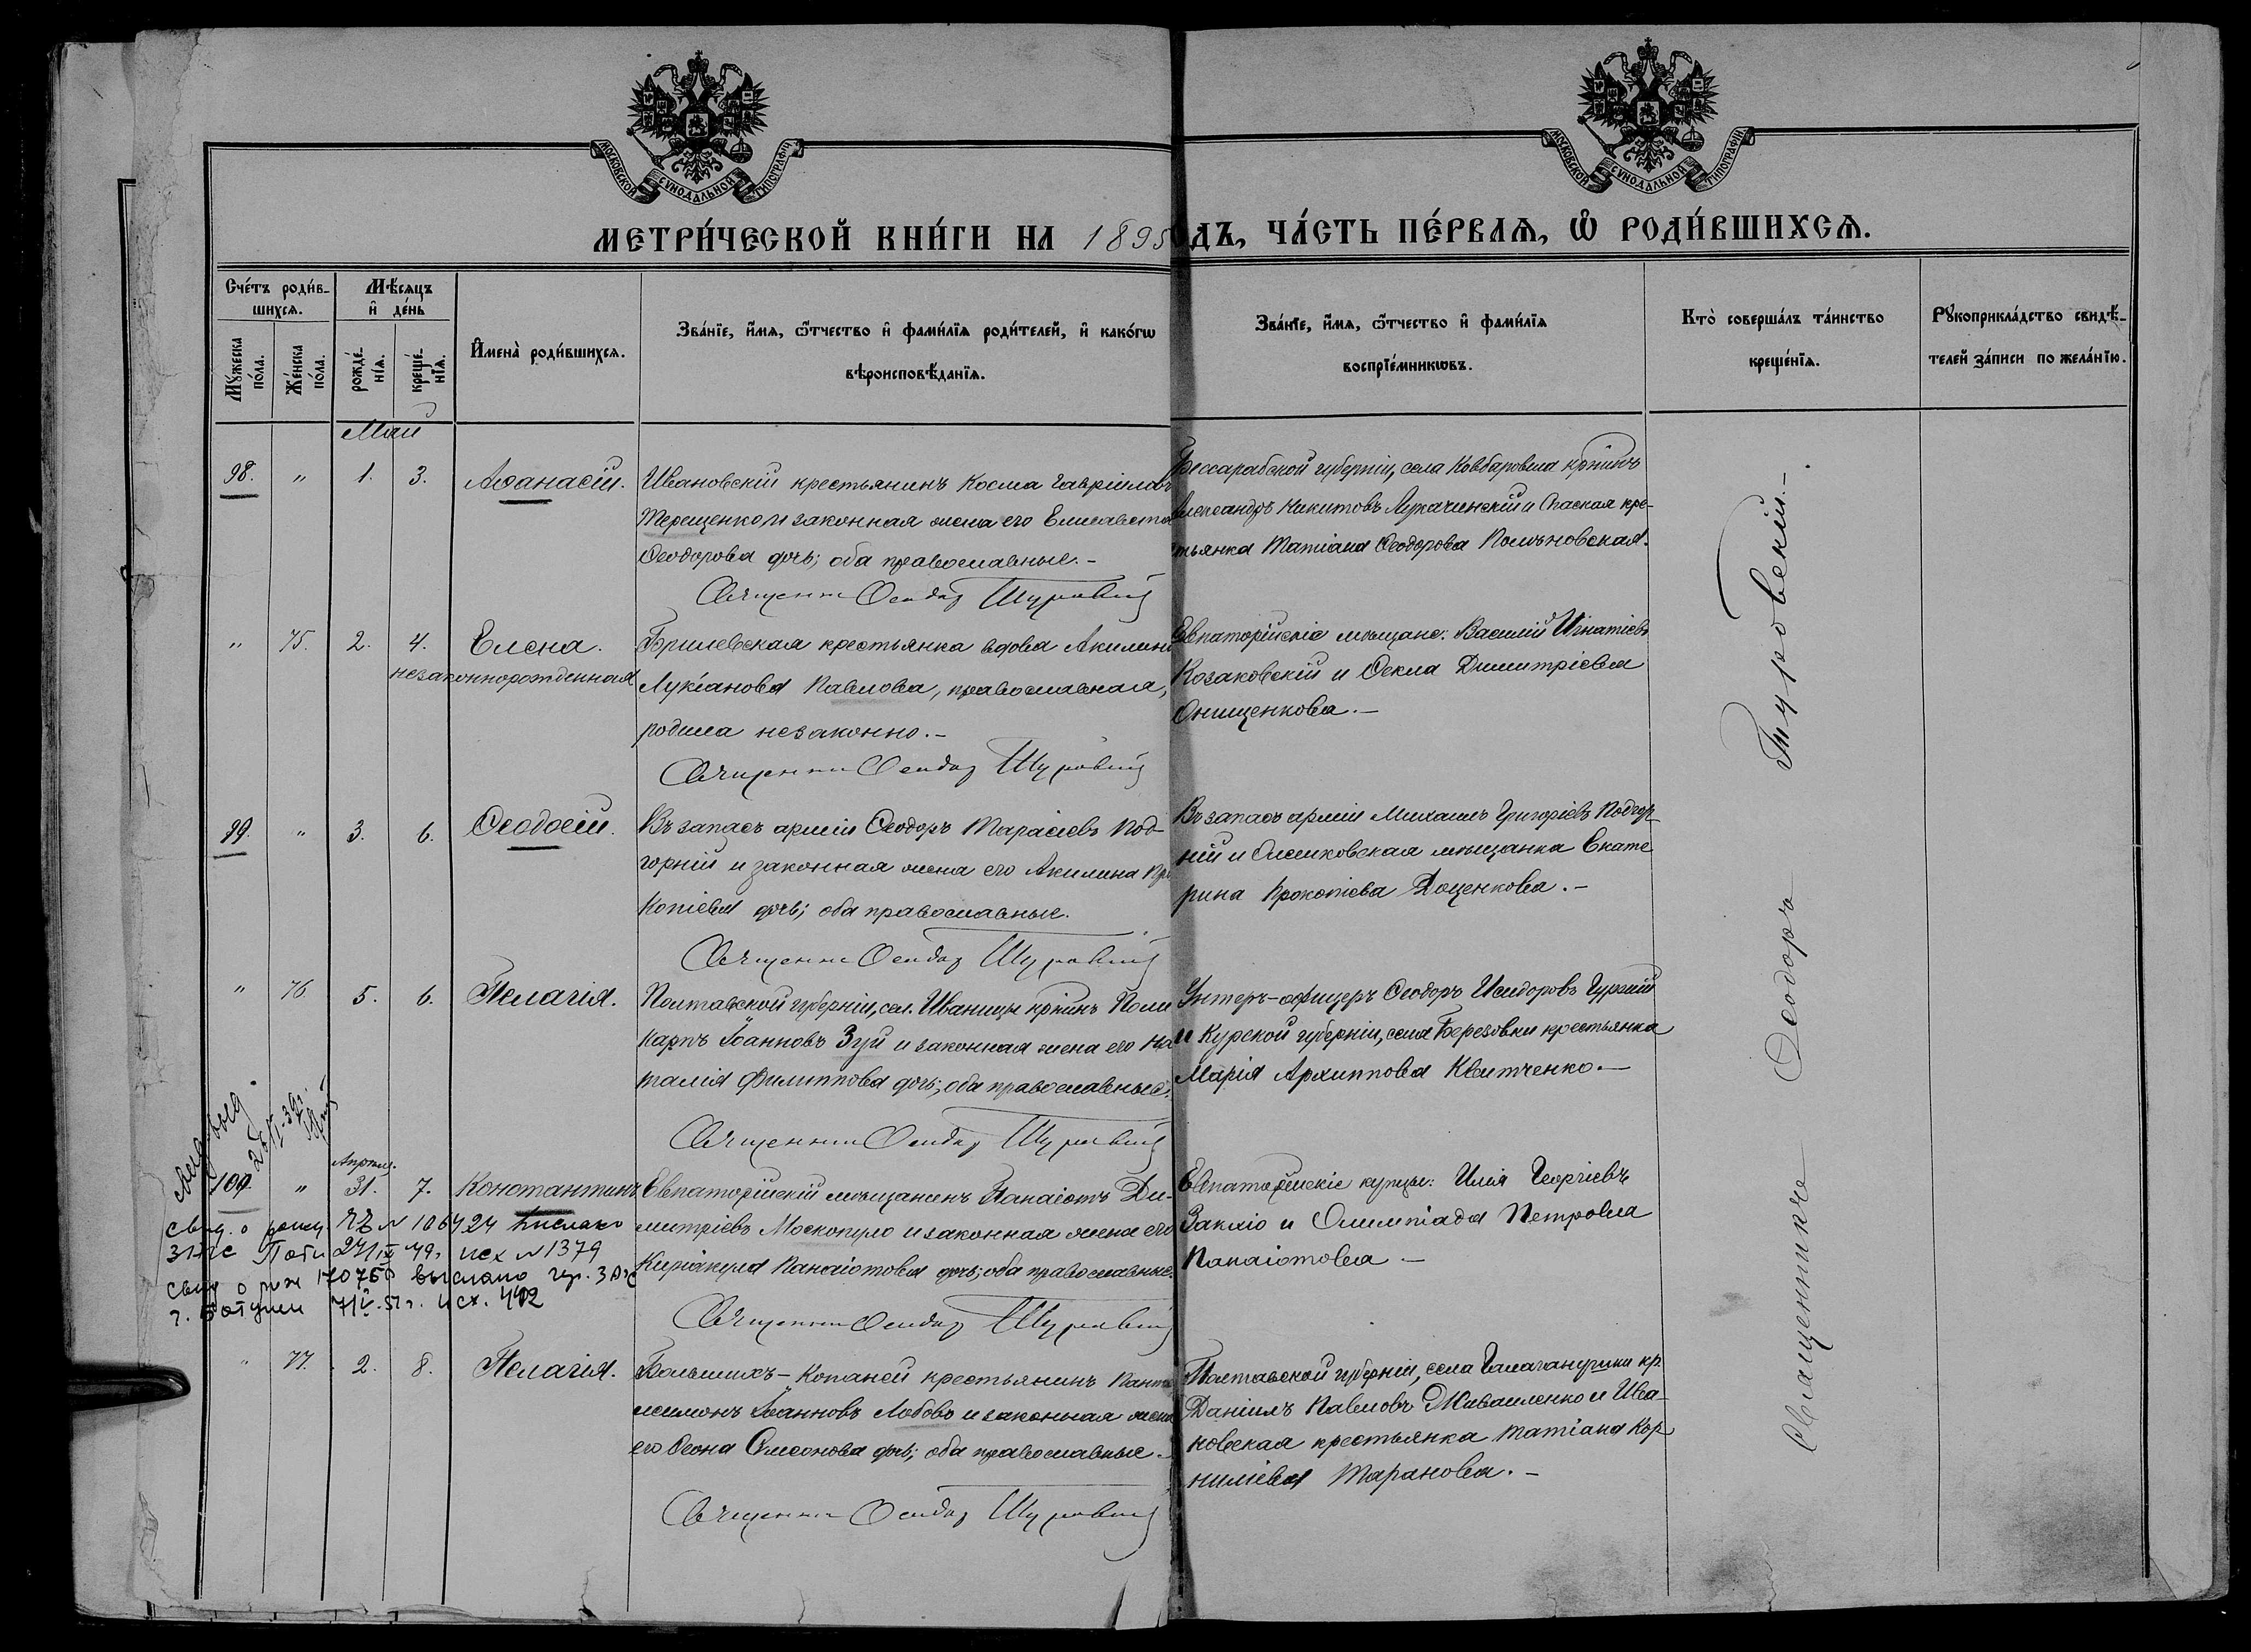 МОСКОВСКОЙ СѴНОДАЛЬНОЙ ТИПОГРАФІИ
МОСКОВСКОЙ СѴНОДАЛЬНОЙ ТИПОГРАФІИ
МЕТРИ́ЧЕСКОЙ КНИ́ГИ НА 1895 ДЪ, ЧА́СТЬ ПЕ́РВАѦ, Ѽ РОДИ́ВШИХСѦ.
Сче́тъ роди́в-
шихсѧ.
Мꙋ́жеска
по́ла.
Же́нска
по́ла.
Мѣ́сѧцъ
и҆ де́нь
рожде́-
нїѧ.
креще́-
нїѧ.
И҆мена̀ роди́вшихсѧ.
Зва́нїе, и҆́мѧ, ѻ҆́тчество и҆ фами́лїѧ роди́телей, и҆ како́гѡ
вѣроисповѣ́данїѧ.
Зва́нїе, и҆́мѧ, ѻ҆́тчество и҆ фами́лїѧ
воспрїе́мникѡвъ.
Кто̀ соверша́лъ та́инство
креще́нїѧ.
Рꙋкоприкла́дство свидѣ́-
телей за́писи по жела́нїю.
Май
98. " 1. 3. Аѳанасій.
Ивановскій крестьянинъ Косма Гавріиловъ
Терещенко и законная жена его Елисавета
Ѳеодорова дочь; оба православные.-
Священникъ Ѳеодоръ Туровскій
Бессарабской губерніи, села Ковбаровка крнинъ
Александръ Никитовъ Лукачинскій и Спаская кре-
стьянка Татіана Ѳеодорова
" 75. 2. 4. Елена.
незаконнорожденная
Бриллевская крестьянка вдова Акилина
Лукіанова Павлова, православная,
родила незаконно.-
Священникъ Ѳеодоръ Туровскій
Евпаторійскіе мѣщане: Василій Игнатіевъ
Козаковскій и Ѳекла Димитріева
Онищенкова.-
99. " 3. 6. Ѳеодосій.
Въ запасѣ арміи Ѳеодоръ Тарасіевъ Под-
горній и законная жена его Акилина Про
копіева дочь; оба православные.
Священникъ Ѳеодоръ Туровскій
Въ запасѣ арміи Михаилъ Григоріевъ Подгор-
ній и Олешковская мѣщанка Екате
рина Прокопіева Доценкова.-
" 76. 5. 6. Пелагія.
Полтавской губерніи, сел. Иваницы крнинъ Поли
карпъ Іоанновъ Зуй и законная жена его На
талія Филиппова дочь; оба православные.
Священникъ Ѳеодоръ Туровскій
Унтеръ-офицеръ Ѳеодоръ Исидоровъ Гурскій
и Курской губерніи, села Березовки крестьянка
Марія Архиппова Квитченко.-
Апрѣля.
100. " 31. 7. Константинъ
Евпаторійскій мѣщанинъ Панаіотъ Ди-
митріевъ Москопуло и законная жена его
Киріакула Панаіотова дочь; оба православные.
Священникъ Ѳеодоръ Туровскій
Евпаторійскіе купцы: Илія Георгіевъ
Заклію и Олимпіада Петрова
Панаіотова -
свид. о рожд. ЧЪ № 106424 выслано
ЗАГС Поти 27/IX 49г. исх № 1379
свид о рож 170750 выслано гор. ЗАГС
г. Батуми 7/V. 51г. исх. 442
" 77. 2. 8. Пелагія.
Большихъ-Копаней крестьянинъ Панте
леимонъ Іоанновъ Лобово и законная жена
его Ѳеона Симеонова дочь; оба православные.-
Священникъ Ѳеодоръ Туровскій
Полтавской губерніи, села кр.
Даніилъ Павловъ Живаиленко и Ива-
новская крестьянка Татіана Кор
ниліева Таранова.-
Священникъ Ѳеодоръ Туровскій.-